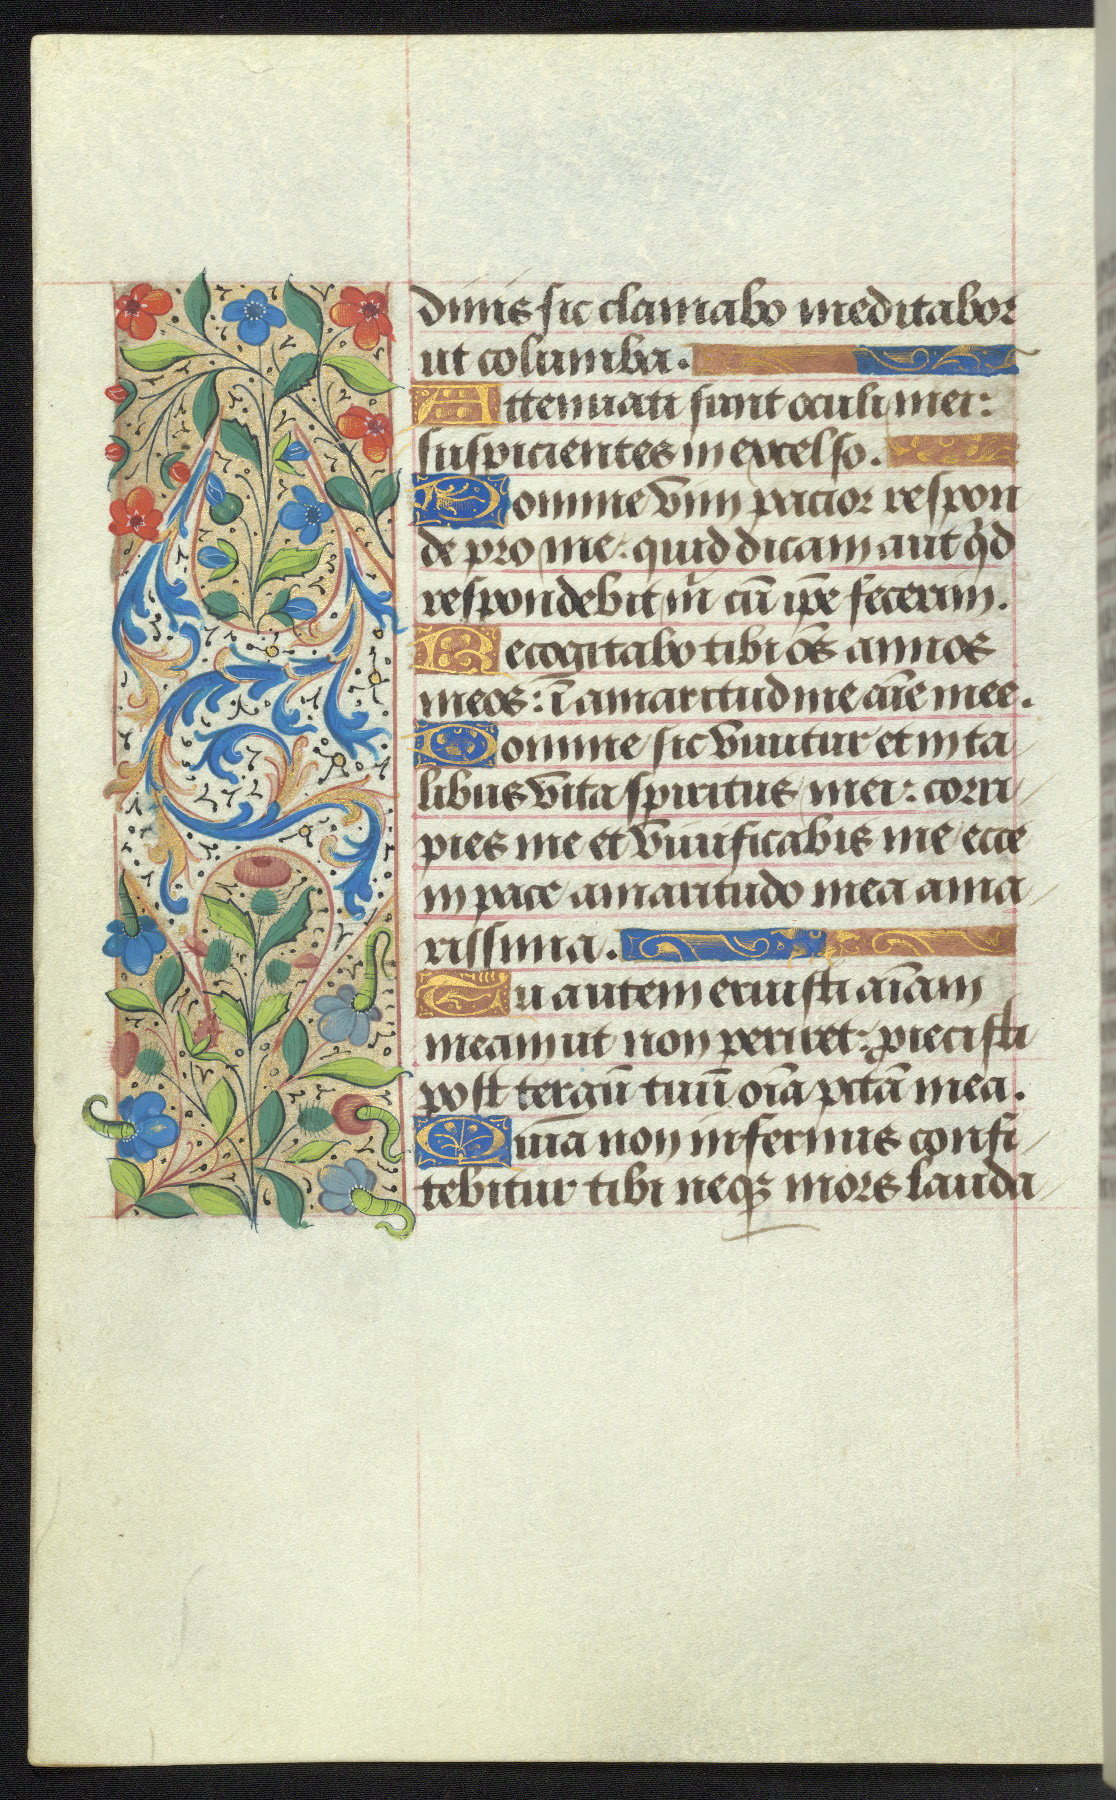 dinis sic clamabo meditabor
ut columba.
Attenuati sunt oculi mei:
suspicientes in excelso.
Domine vim pacior respon
de pro me: quid dicam aut qd̄
respondebit m̄ cū ip̄e fecerim.
Recogitabo tibi oēs annos
meos: ī amaritudine aīe mee.
Domine sic vivitur et in ta
libus vita spiritus mei: corri
pies me et vivificabis me ecce
in pace amaritudo mea ama
rissima.
Tu autem eruisti aīam
meam ut non periret: ꝓiecisti
post tergū tuū oīa pctā mea.
Quia non infernus confi
tebitur tibi neqꝫ mors lauda